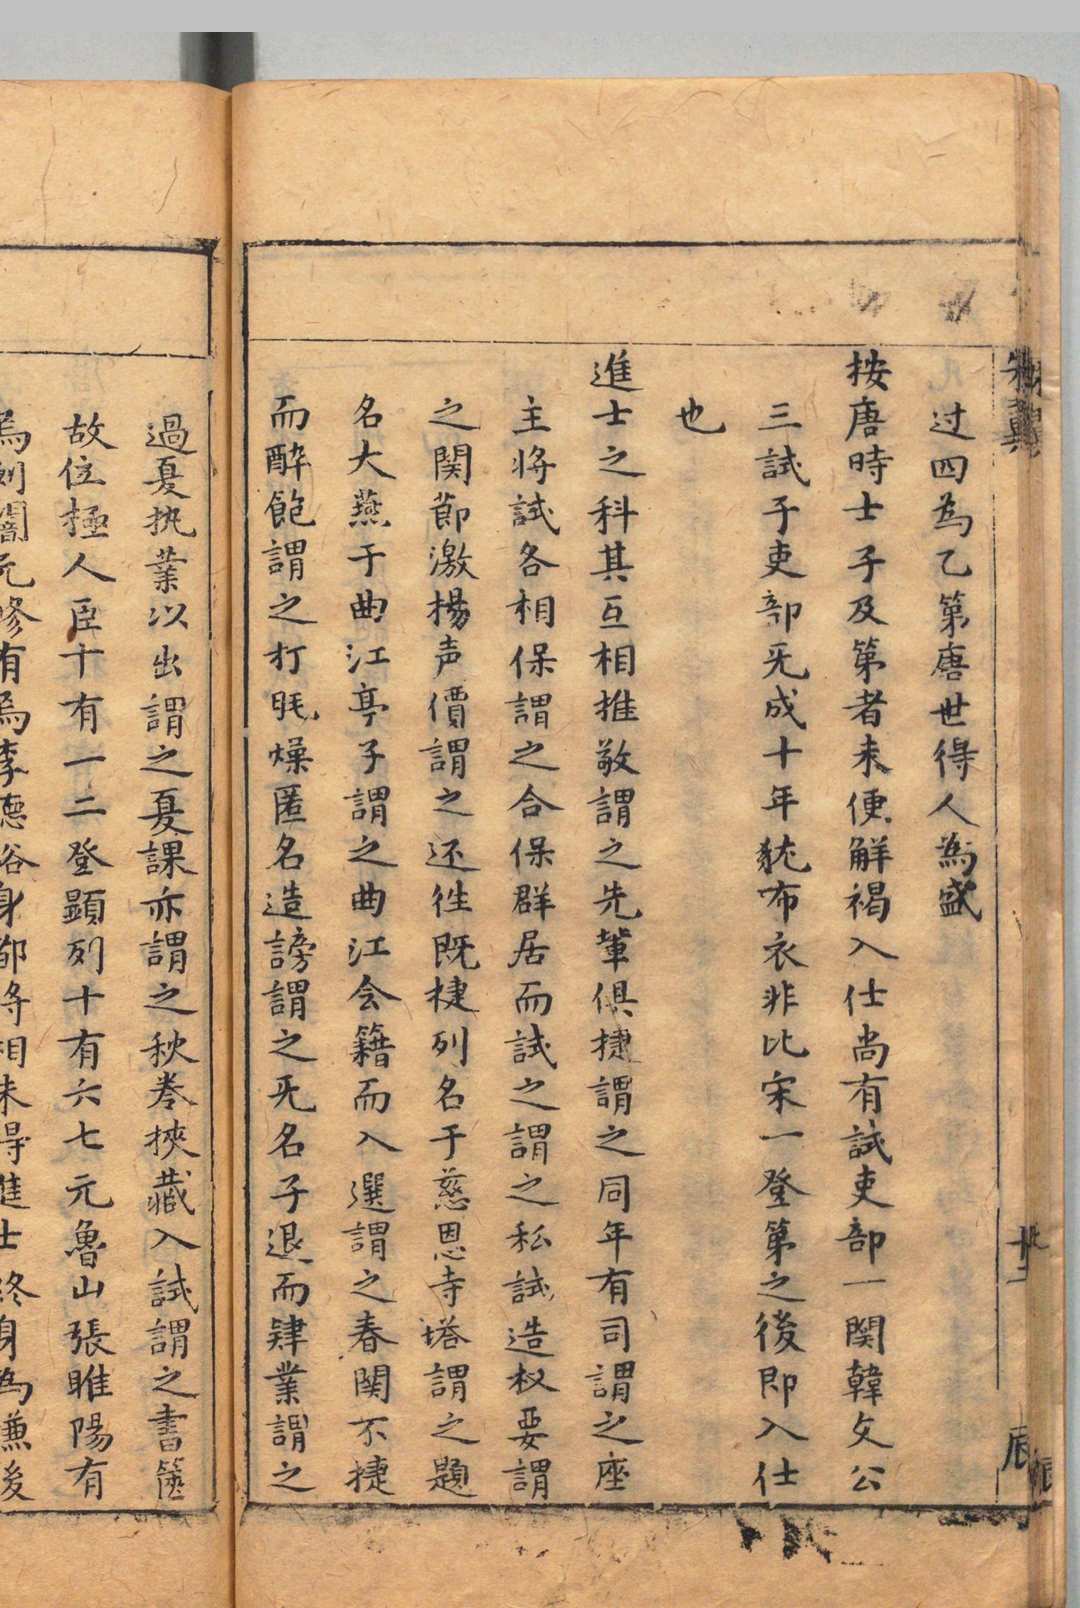 过四為乙第唐世得人為盛
按唐時士子及第者未便解褐入仕尚有試吏部一関韓文公
三試于吏部旡成十年犹布衣非比宋一登第之後即入仕
也
進士之科其互相推敬謂之先輩俱捷謂之同年有司謂之座
主将試各相保謂之合保群居而試之謂之私試造权要謂
之関節激楊声價謂之还徃既捷列名于慈恩寺塔謂之題
名大燕于曲江亭子謂之曲江会籍而入選謂之春関不捷
而醉飽謂之打毷燥匿名造謗謂之旡名子退而肄業謂之
過夏执業以出謂之夏課亦謂之秋卷挾藏入試謂之書篋
故位極人臣十有一二登顯列十有六七元魯山張睢陽有
焉刘闢元修有焉李德裕身都将相未得進士終身為慊後